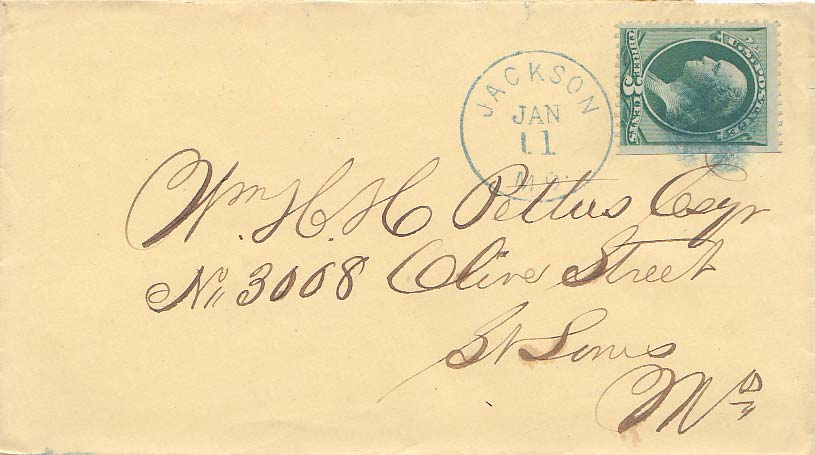 U.S. POSTAGE
THREE 3 CENTS
JACKSON
JAN
11
MO.
Wm. H. H. Pettus Esqr
No. 3008 Olive Street
St Louis
Mo